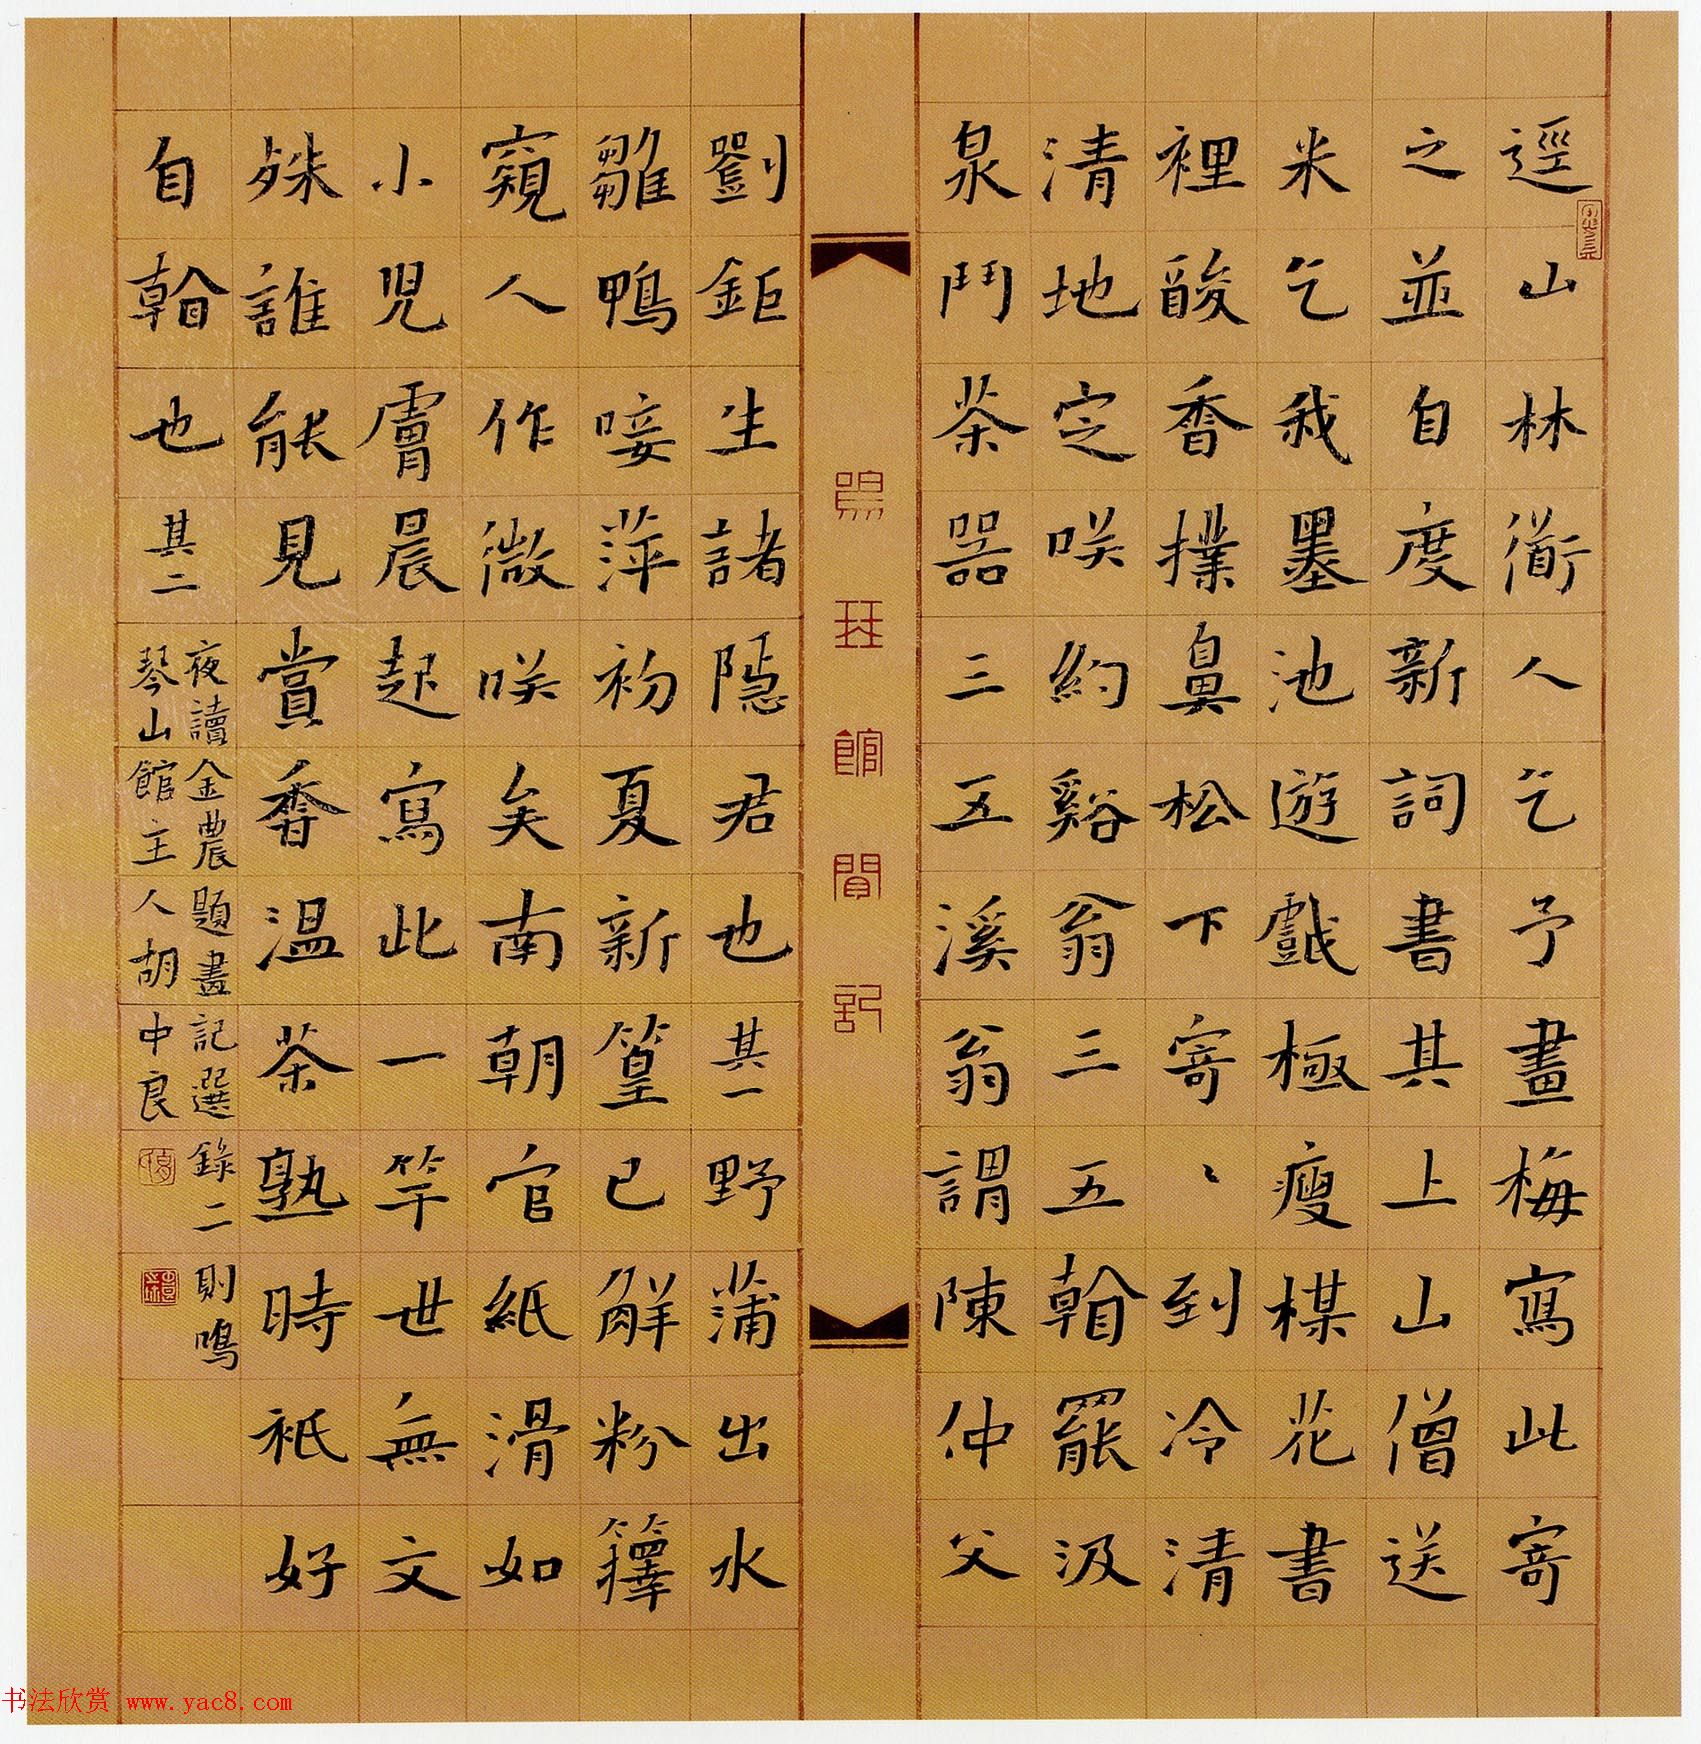 逕山林衜人乞予畫梅寫此寄
之並自度新詞書其上山僧送
米乞我墨池遊戲極瘦楳花書
裡酸香撲鼻松下寄、到冷清
清地定咲約谿翁三五看罷汲
泉鬥茶器三五溪翁謂陳仲父
鳴琴館閒記
劉鉅生諸隱君也其一野蒲出水
雛鴨唼萍初夏新篁已解粉籜
窺人作微咲矣南朝官紙如滑
小兒膚晨起寫此一竿世無文
殊誰能見賞香溫茶熟時衹好
自看也其二
夜讀金農題畫記選錄二則鳴
琴山館主人胡中良
书法欣赏 www.yac8.com